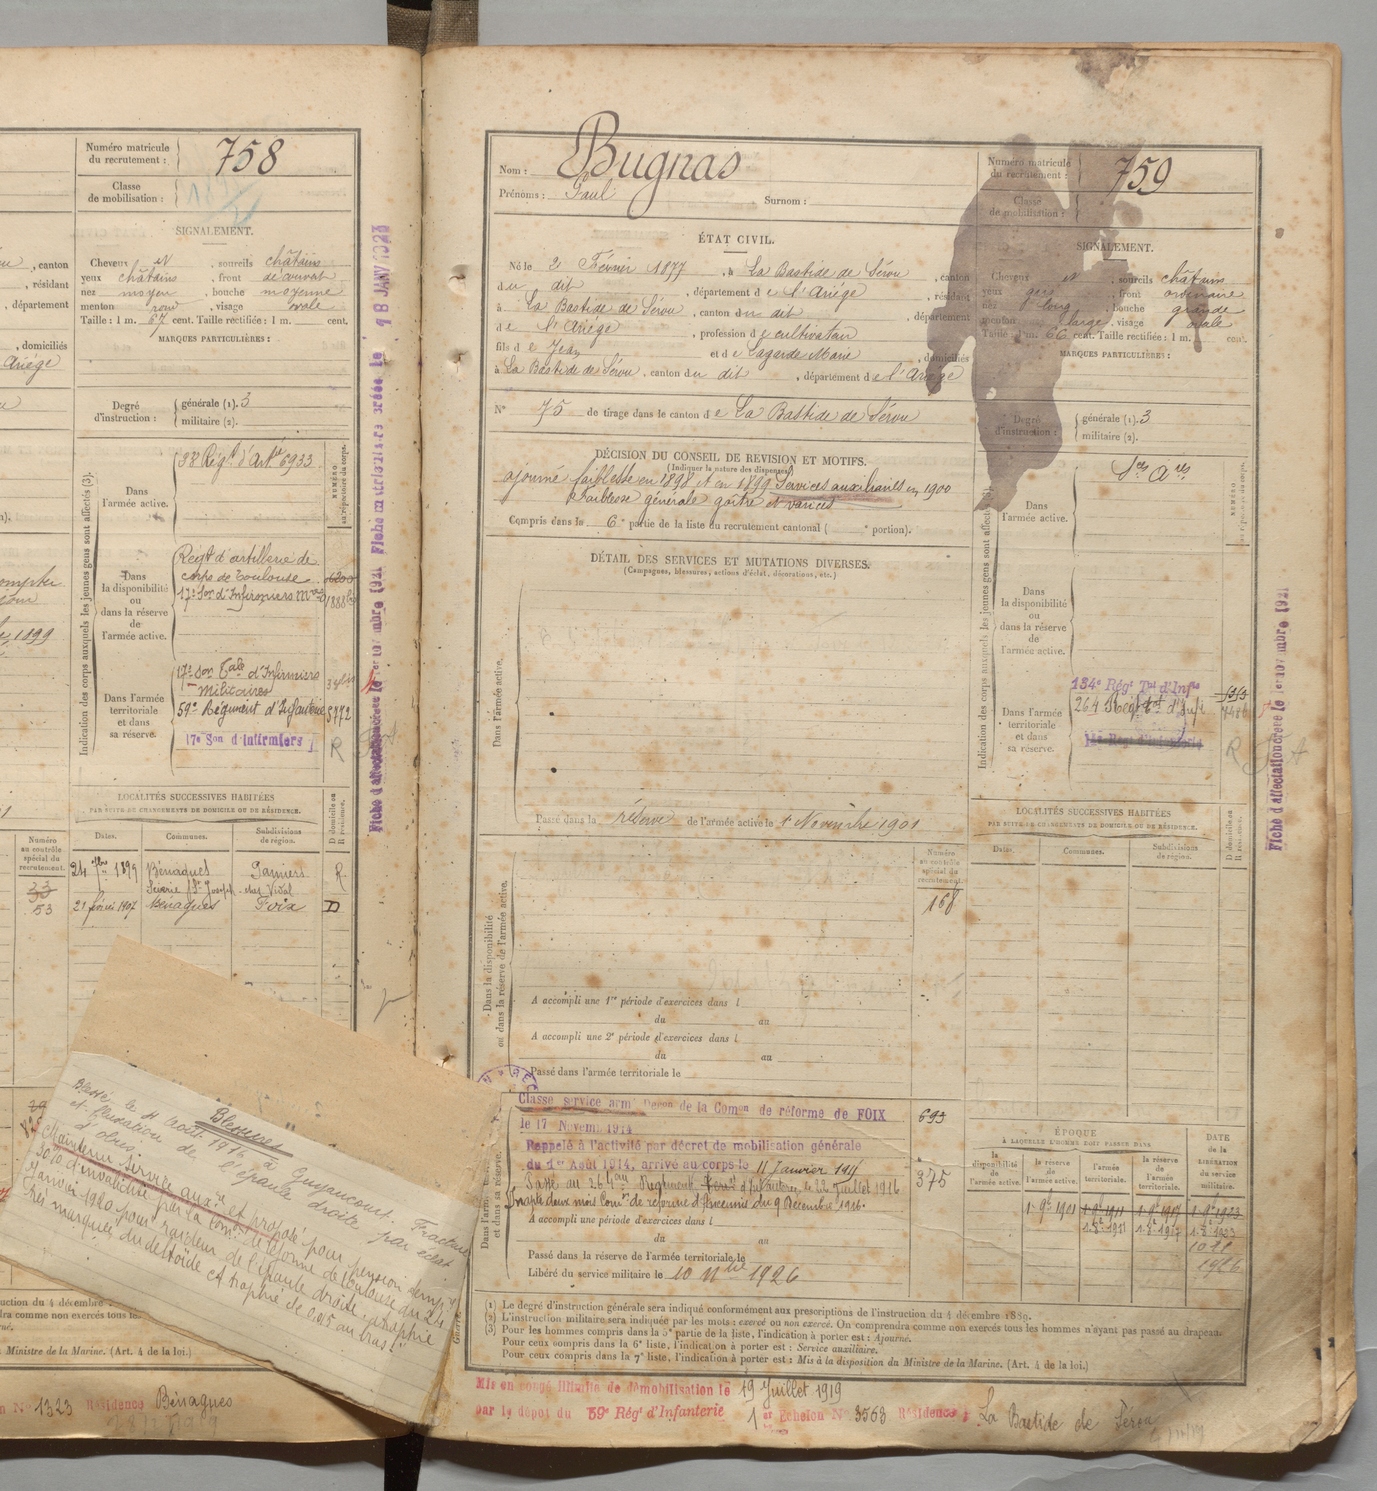 Numéro matricule
du recrutement :
758
Classe
de mobilisation :
SIGNALEMENT.
Cheveux N , sourcils châtains
, canton
yeux châtains , front découvert
, résidant
nez moyen , bouche moyenne
, département
menton rond , visage ovale
Taille : 1 m. 67 cent. Taille rectifiée : 1 m. cent.
MARQUES PARTICULIÈRES :
, domiciliés
Ariège
Degré
d'instruction :
générale (1). 3
militaire (2).
Indication des corps auxquels les jeunes gens sont affectés (3).
NUMÉRO
au répertoire du corps.
Dans
l'armée active.
38 Régt d'Artie 6933
Dans
la disponibilité
ou
dans la réserve
de
l'armée active.
Regt d'artillerie de
corps de Toulouse 6200
17e Son d'Infirmiers Mres
1899
Dans l'armée
territoriale
et dans
sa réserve.
17e Son Tale d'Infirmiers
Militaires
59e Régiment d'Infanterie 3772
17e Son d'infirmiers
R
LOCALITÉS SUCCESSIVES HABITÉES
PAR SUITE DE CHANGEMENTS DE DOMICILE OU DE RÉSIDENCE.
D domicile ou
R résidence.
Numéro
au contrôle
spécial du
recrutement.
Dates.
Communes.
Subdivisions
de région.
24 7bre 1899 Bénagues Pamiers R
33
Scierie St Joseph chez Vidal
53
21 février 1907 Bénagues Foix D
Fiche d'affectation créée le 1er novembre 1921
Blessures
Blessé le 11 Août 1916 à Guyancourt. Fracture
et luxation de l'épaule droite par éclat
d'obus.
Maintenu service auxre et proposé pour pension tempre
30% d'invalidité par la Comon de réforme de Toulouse du 24
Janvier 1920 pour raideur de l'épaule droite, atrophie
très marquée du deltoïde Atrophie de 0.015 au bras.
ction du 4 décembre
dra comme non exercés tous les
Ministre de la Marine. (Art. 4 de la loi.)
N° 1323 Résidence Bénagues
Nom : Bugnas
Prénoms : Paul Surnom :
Numéro matricule
du recrutement :
759
Classe
de mobilisation :
ÉTAT CIVIL.
Né le 2 Février 1877 , à La Bastide de Sérou , canton
du dit , département de l'Ariège , résidant
à La Bastide de Sérou , canton du dit , département
de l'Ariège , profession de cultivateur
fils de Jean et de Lagarde Marie , domiciliés
à La Bastide de Sérou , canton du dit , département de l'Ariège
SIGNALEMENT.
Cheveux N , sourcils châtains
yeux gris , front ordinaire
nez long , bouche grande
menton large , visage ovale
Taille : 1 m. 66 cent. Taille rectifiée : 1 m. cent.
MARQUES PARTICULIÈRES :
N° 75 de tirage dans le canton de La Bastide de Sérou
Degré
d'instruction :
générale (1). 3
militaire (2).
DÉCISION DU CONSEIL DE RÉVISION ET MOTIFS.
(Indiquer la nature des dispenses)
ajourné faiblesse en 1898 et en 1899 Services auxiliaires en 1900
faiblesse générale goitre et varices
Compris dans la 6e partie de la liste du recrutement cantonal ( e portion).
DÉTAIL DES SERVICES ET MUTATIONS DIVERSES.
(Campagnes, blessures, actions d'éclat, décorations, etc.)
Dans l'armée active.
Passé dans la réserve de l'armée active le 1 Novembre 1901
Indication des corps auxquels les jeunes gens sont affectés (3).
NUMÉRO
Dans
l'armée active.
Ses Ares
Dans
la disponibilité
ou
dans la réserve
de
l'armée active.
Dans l'armée
territoriale
et dans
sa réserve.
134e Régt Tal d'Infie
264 Régt d'Infie
R
LOCALITÉS SUCCESSIVES HABITÉES
PAR SUITE DE CHANGEMENTS DE DOMICILE OU DE RÉSIDENCE.
D domicile ou
R résidence.
Dates.
Communes.
Subdivisions
de région.
Fiche d'affectation créée le 1er novembre 1921
Dans la disponibilité
ou dans la réserve de l'armée active.
Numéro
au contrôle
spécial du
recrutement.
168
A accompli une 1re période d'exercices dans l
du au
A accompli une 2e période d'exercices dans l
du au
Passé dans l'armée territoriale le
Classé service armé Décon de la Comon de réforme de FOIX
693
le 17 Novem. 1914
Rappelé à l'activité par décret de mobilisation générale
du 1er Août 1914, arrivé au corps le 11 Janvier 1915
Passé au 264me Régiment d'Infanterie, le 22 Juillet 1916
375
Inapte deux mois Comon de réforme d'Ancenis du 9 Décembre 1916.
A accompli une période d'exercices dans l
du au
Passé dans la réserve de l'armée territoriale le
Libéré du service militaire le 10 Nbre 1926
ÉPOQUE
À LAQUELLE L'HOMME DOIT PASSER DANS
DATE
DE LA
LIBÉRATION
du service
militaire.
la
disponibilité
de l'armée
active.
la réserve
de
l'armée active.
l'armée
territoriale.
la réserve
de
l'armée
territoriale.
1 9bre 1901 1 9bre 1911 1 9bre 1917 1 9bre 1923
1.8.1911 1.8.1917 1.8.1923
1926
(1) Le degré d'instruction générale sera indiqué conformément aux prescriptions de l'instruction du 4 décembre 1889.
(2) L'instruction militaire sera indiquée par les mots : exercé ou non exercé. On comprendra comme non exercés tous les hommes n'ayant pas passé au drapeau.
(3) Pour les hommes compris dans la 5e partie de la liste, l'indication à porter est : Ajourné.
Pour ceux compris dans la 6e liste, l'indication à porter est : Service auxiliaire.
Pour ceux compris dans la 7e liste, l'indication à porter est : Mis à la disposition du Ministre de la Marine. (Art. 4 de la loi.)
Mis en congé illimité de démobilisation le 19 Juillet 1919
par le dépôt du 59e Régt d'Infanterie 1er Echelon N° 3563 Résidence : La Bastide de Sérou